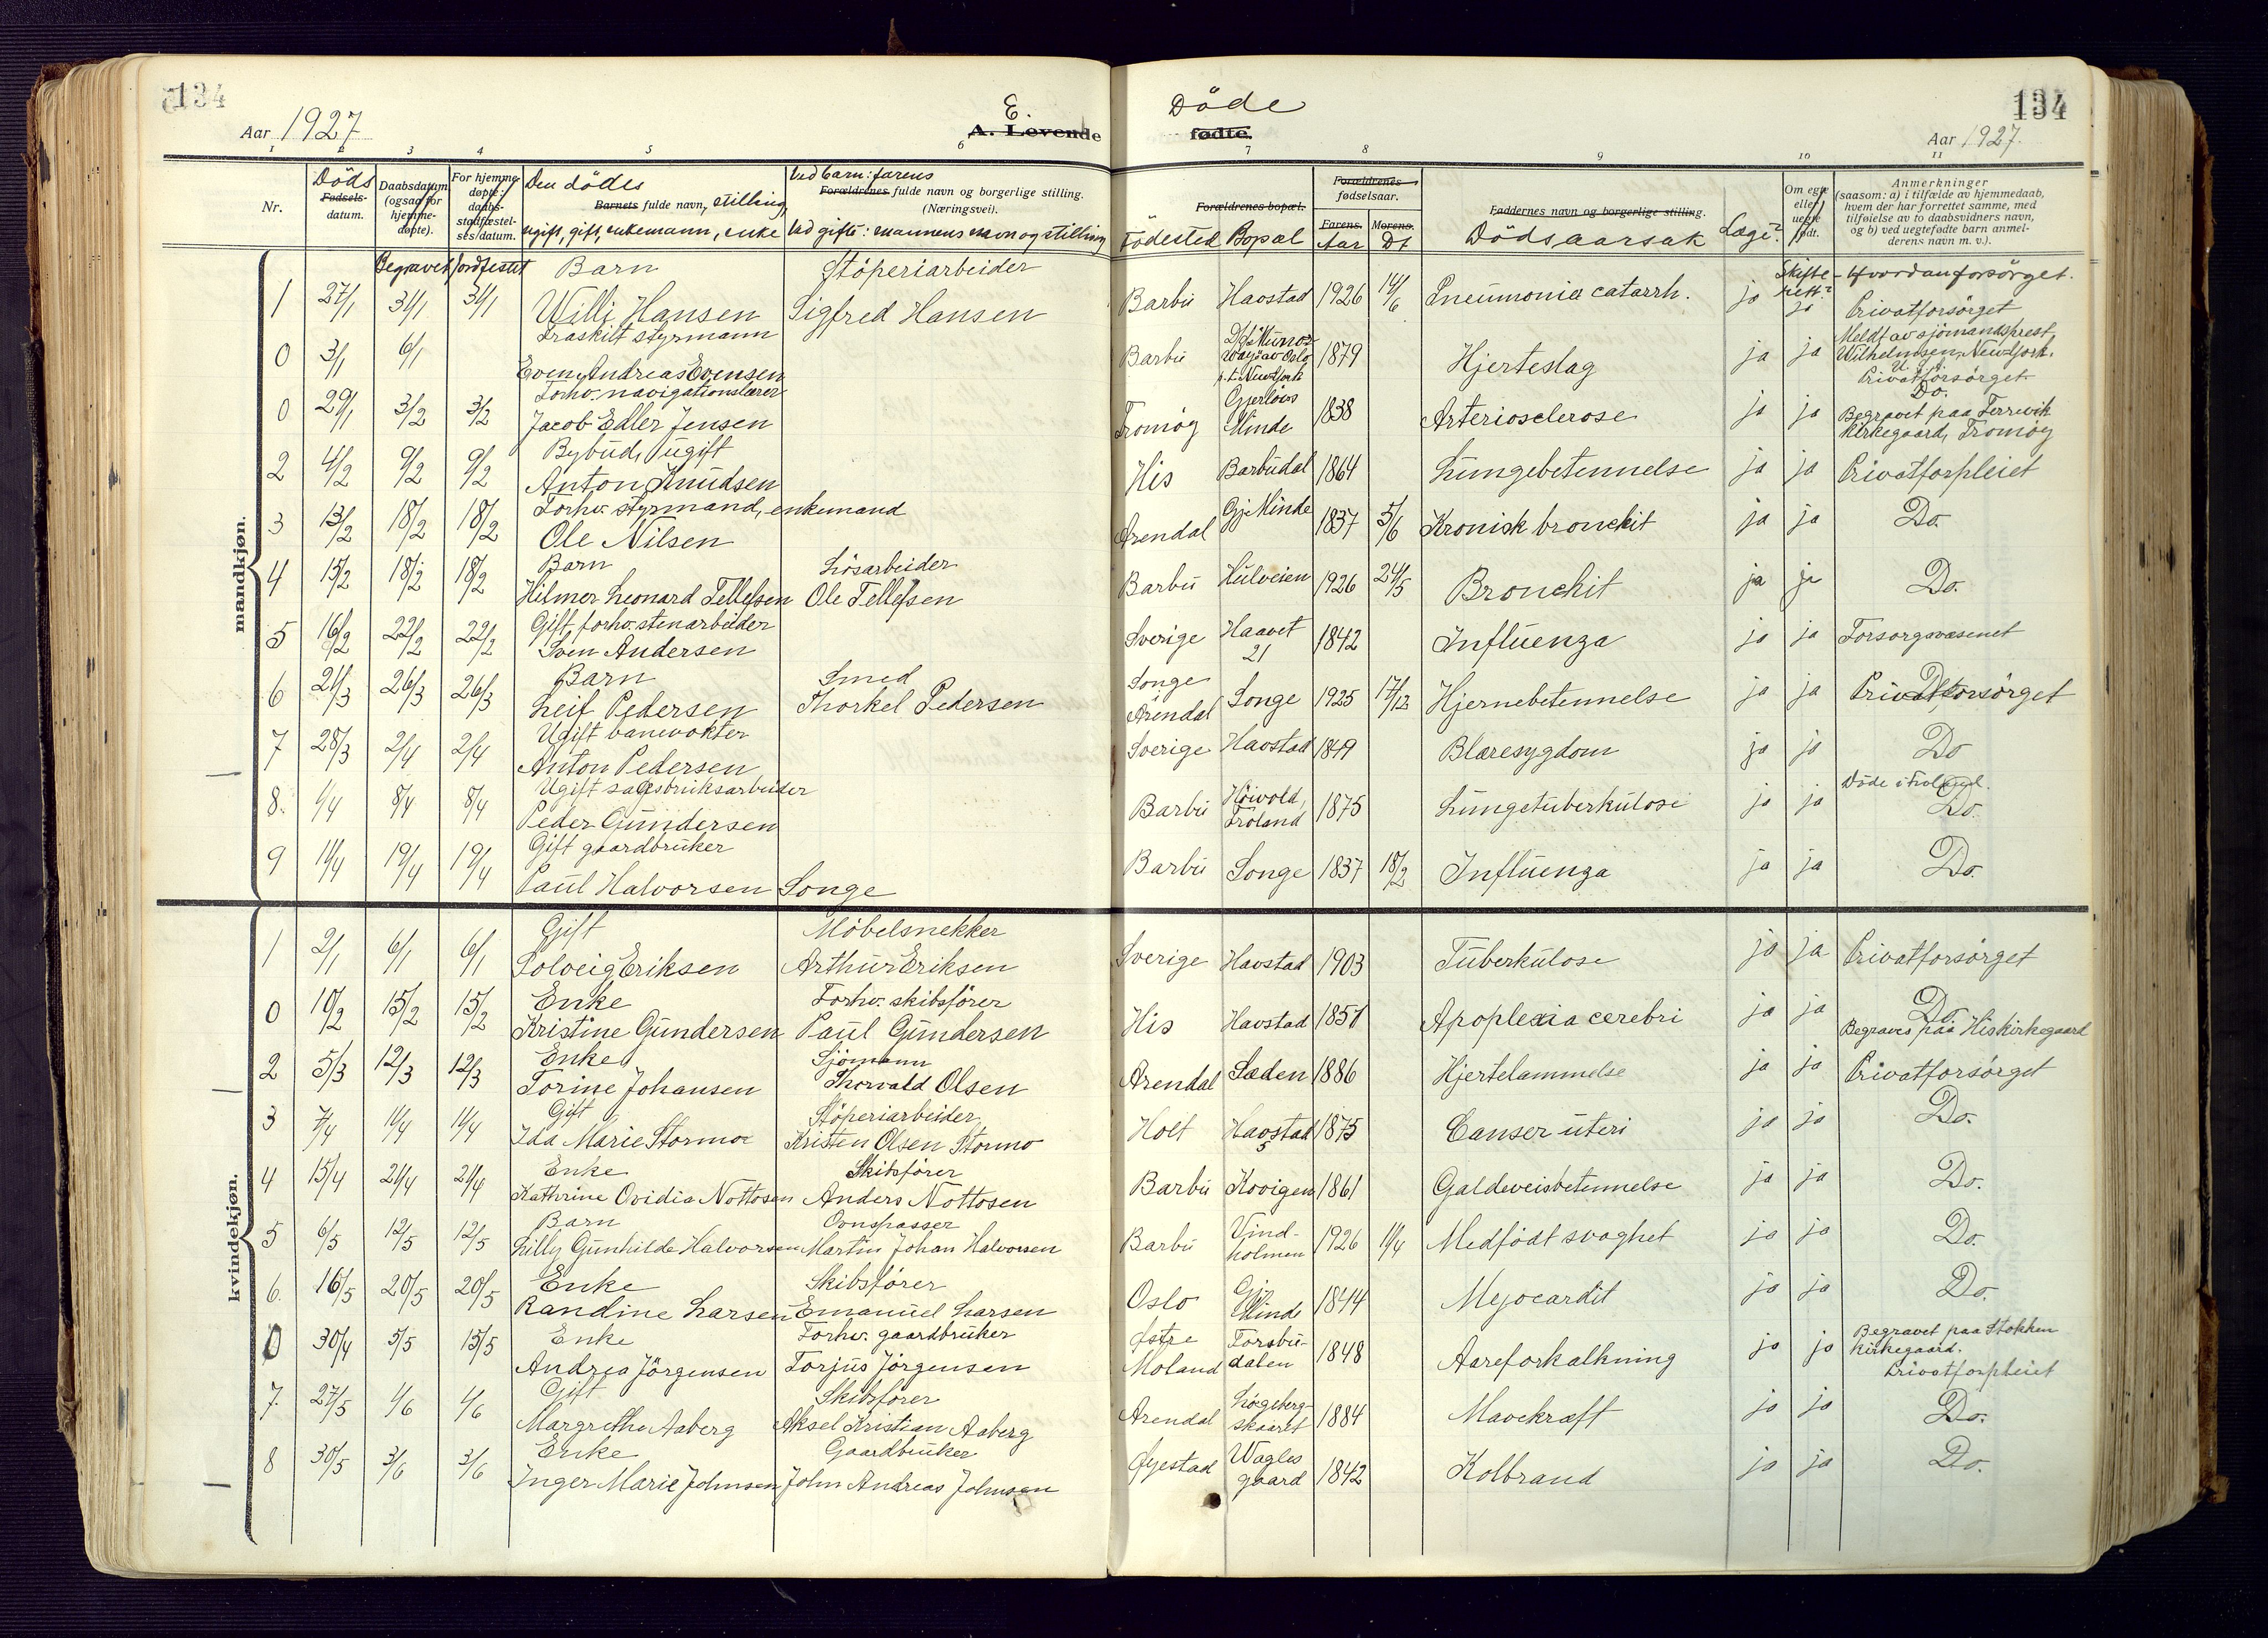 134
134
Aar 1927
E.
A. Levende
Döde
fødte.
Aar 1927.
1 2 3 4 5 6 7 8 9 10 11
Nr.
Döds
Fødsels-
datum.
Daabsdatum
(ogsaa for
hjemme-
døpte).
For hjemme-
døpte:
daabs-
stadfæstel-
ses datum.
Den dödes
Barnets fulde navn, stilling,
ugift, gift, enkemann, enke
Ved barn: farens
Forældrenes fulde navn og borgerlige stilling.
(Næringsvei).
Ved gifte: mannens navn og stilling
Forældrenes bopæl.
Födested Bopæl
Forældrenes
fødselsaar.
Farens. Morens.
Aar Dt
Faddernes navn og borgerlige stilling.
Dödsaarsak
Læge?
Om egte
eller
uegte
født.
Anmerkninger
(saasom: a) i tilfælde av hjemmedaab,
hvem der har forrettet samme, med
tilføielse av to daabsvidners navn,
og b) ved uegtefødte barn anmel-
derens navn m. v.).
Begravet Jordfestet
Skifte-
rett?
Hvordan forsörget.
mandkjøn.
1 27/1 31/1 31/1 Barn
Willi Hansen Stöperiarbeider
Sigfred Hansen Barbu Havstad 1926 14/6 Pneumonia catarrh. ja ja Privatforsörget
0 3/1 6/1 Fraskilt styrmann
Even Andreas Evensen Barbu D/S "Munorway" av Oslo
p.t. New York 1879 Hjerteslag ja ja Meldt av sjömandsprest
Wilhelmsen, New York.
Privatforsörget
0 29/1 3/2 3/2 Forhv. navigationslærer
Jacob Edler Jensen Tromöy Gjerlövs
Minde 1838 Arteriosclerose ja ja Do.
Begravet paa Færvik
Kirkegaard, Tromöy
2 4/2 9/2 9/2 Bybud, ugift
Anton Knudsen His Barbudal 1864 Lungebetennelse ja ja Privatforpleiet
3 13/2 18/2 18/2 Forhv. styrmand, enkemand
Ole Nilsen Arendal Gj. Minde 1837 5/6 Kronisk bronchit ja ja Do.
4 15/2 18/2 18/2 Barn
Hilmer Leonard Tellefsen Lösarbeider
Ole Tellefsen Barbu Hulveien 1926 24/5 Bronchit ja ja Do.
5 16/2 22/2 22/2 Gift forhv. stenarbeider
Sven Andersen Sverige Haavet
21 1842 Influenza ja ja Forsorgsvæsenet
6 21/3 26/3 26/3 Barn
Leif Pedersen Smed
Thorkel Pedersen Songe
Arendal Songe 1925 17/12 Hjernebetennelse ja ja Privatforsörget
7 28/3 2/4 2/4 Ugift banevokter
Anton Pedersen Sverige Havstad 1849 Blæresygdom ja ja Do
8. 1/4 8/4 8/4 Ugift sagbruksarbeider
Peder Gundersen Barbu Höivold,
Froland 1875 Lungetuberkulose ja ja Döde i Froland.
Do.
9 11/4 19/4 19/4 Gift gaardbruker
Paul Halvorsen Songe Barbu Songe 1837 18/2 Influenza ja ja Do.
kvindekjøn.
1 2/1 6/1 6/1 Gift
Solveig Eriksen Möbelsnekker
Arthur Eriksen Sverige Havstad 1903 Tuberkulose ja ja Privatforsörget
0 10/2 15/2 15/2 Enke
Kristine Gundersen Forhv. skibsförer
Paul Gundersen His Havstad 1851 Apoplexia cerebri ja ja Do.
Begraves paa His kirkegaard
2 5/3 12/3 12/3 Enke
Torine Johansen Sjömann
Thorvald Olsen Arendal Sæden 1886 Hjertelammelse ja ja Privatforsörget
3 7/4 11/4 11/4 Gift
Ida Marie Stormo Stöperiarbeider
Kristen Olsen Stormo Holt Havstad
5 1875 Canser uteri ja ja Do.
4 15/4 21/4 21/4 Enke
Kathrine Ovidia Nottosen Skibsförer
Anders Nottosen Barbu Kovigen 1861 Galdeveisbetennelse ja ja Do.
5 6/5 12/5 12/5 Barn
Lilly Gunhilde Halvorsen Ovnspasser
Martin Johan Halvorsen Barbu Vind-
holmen 1926 11/4 Medfödt svaghet ja ja Do.
6. 16/5 20/5 20/5 Enke
Randine Larsen Skibsförer
Emanuel Larsen Oslo Gj.
Minde 1844 Myocardit ja ja Do.
0 30/4 5/5 15/5 Enke
Andrea Jörgensen Forhv. gaardbruker
Torjus Jörgensen Østre
Moland Torsbu-
dalen 1848 Aareforkalkning ja ja Begravet paa Stokken
kirkegaard.
Privatforpleiet
7. 27/5 1/6 1/6 Gift
Margrethe Aaberg Skibsförer
Aksel Kristian Aaberg Arendal Lögeberg-
skaaret 1884 Mavekræft ja ja Do.
8 30/5 3/6 3/6 Enke
Inger Marie Johnsen Gaardbruker
John Andreas Johnsen Øyestad Wagles
gaard 1842 Kolbrand ja ja Do.